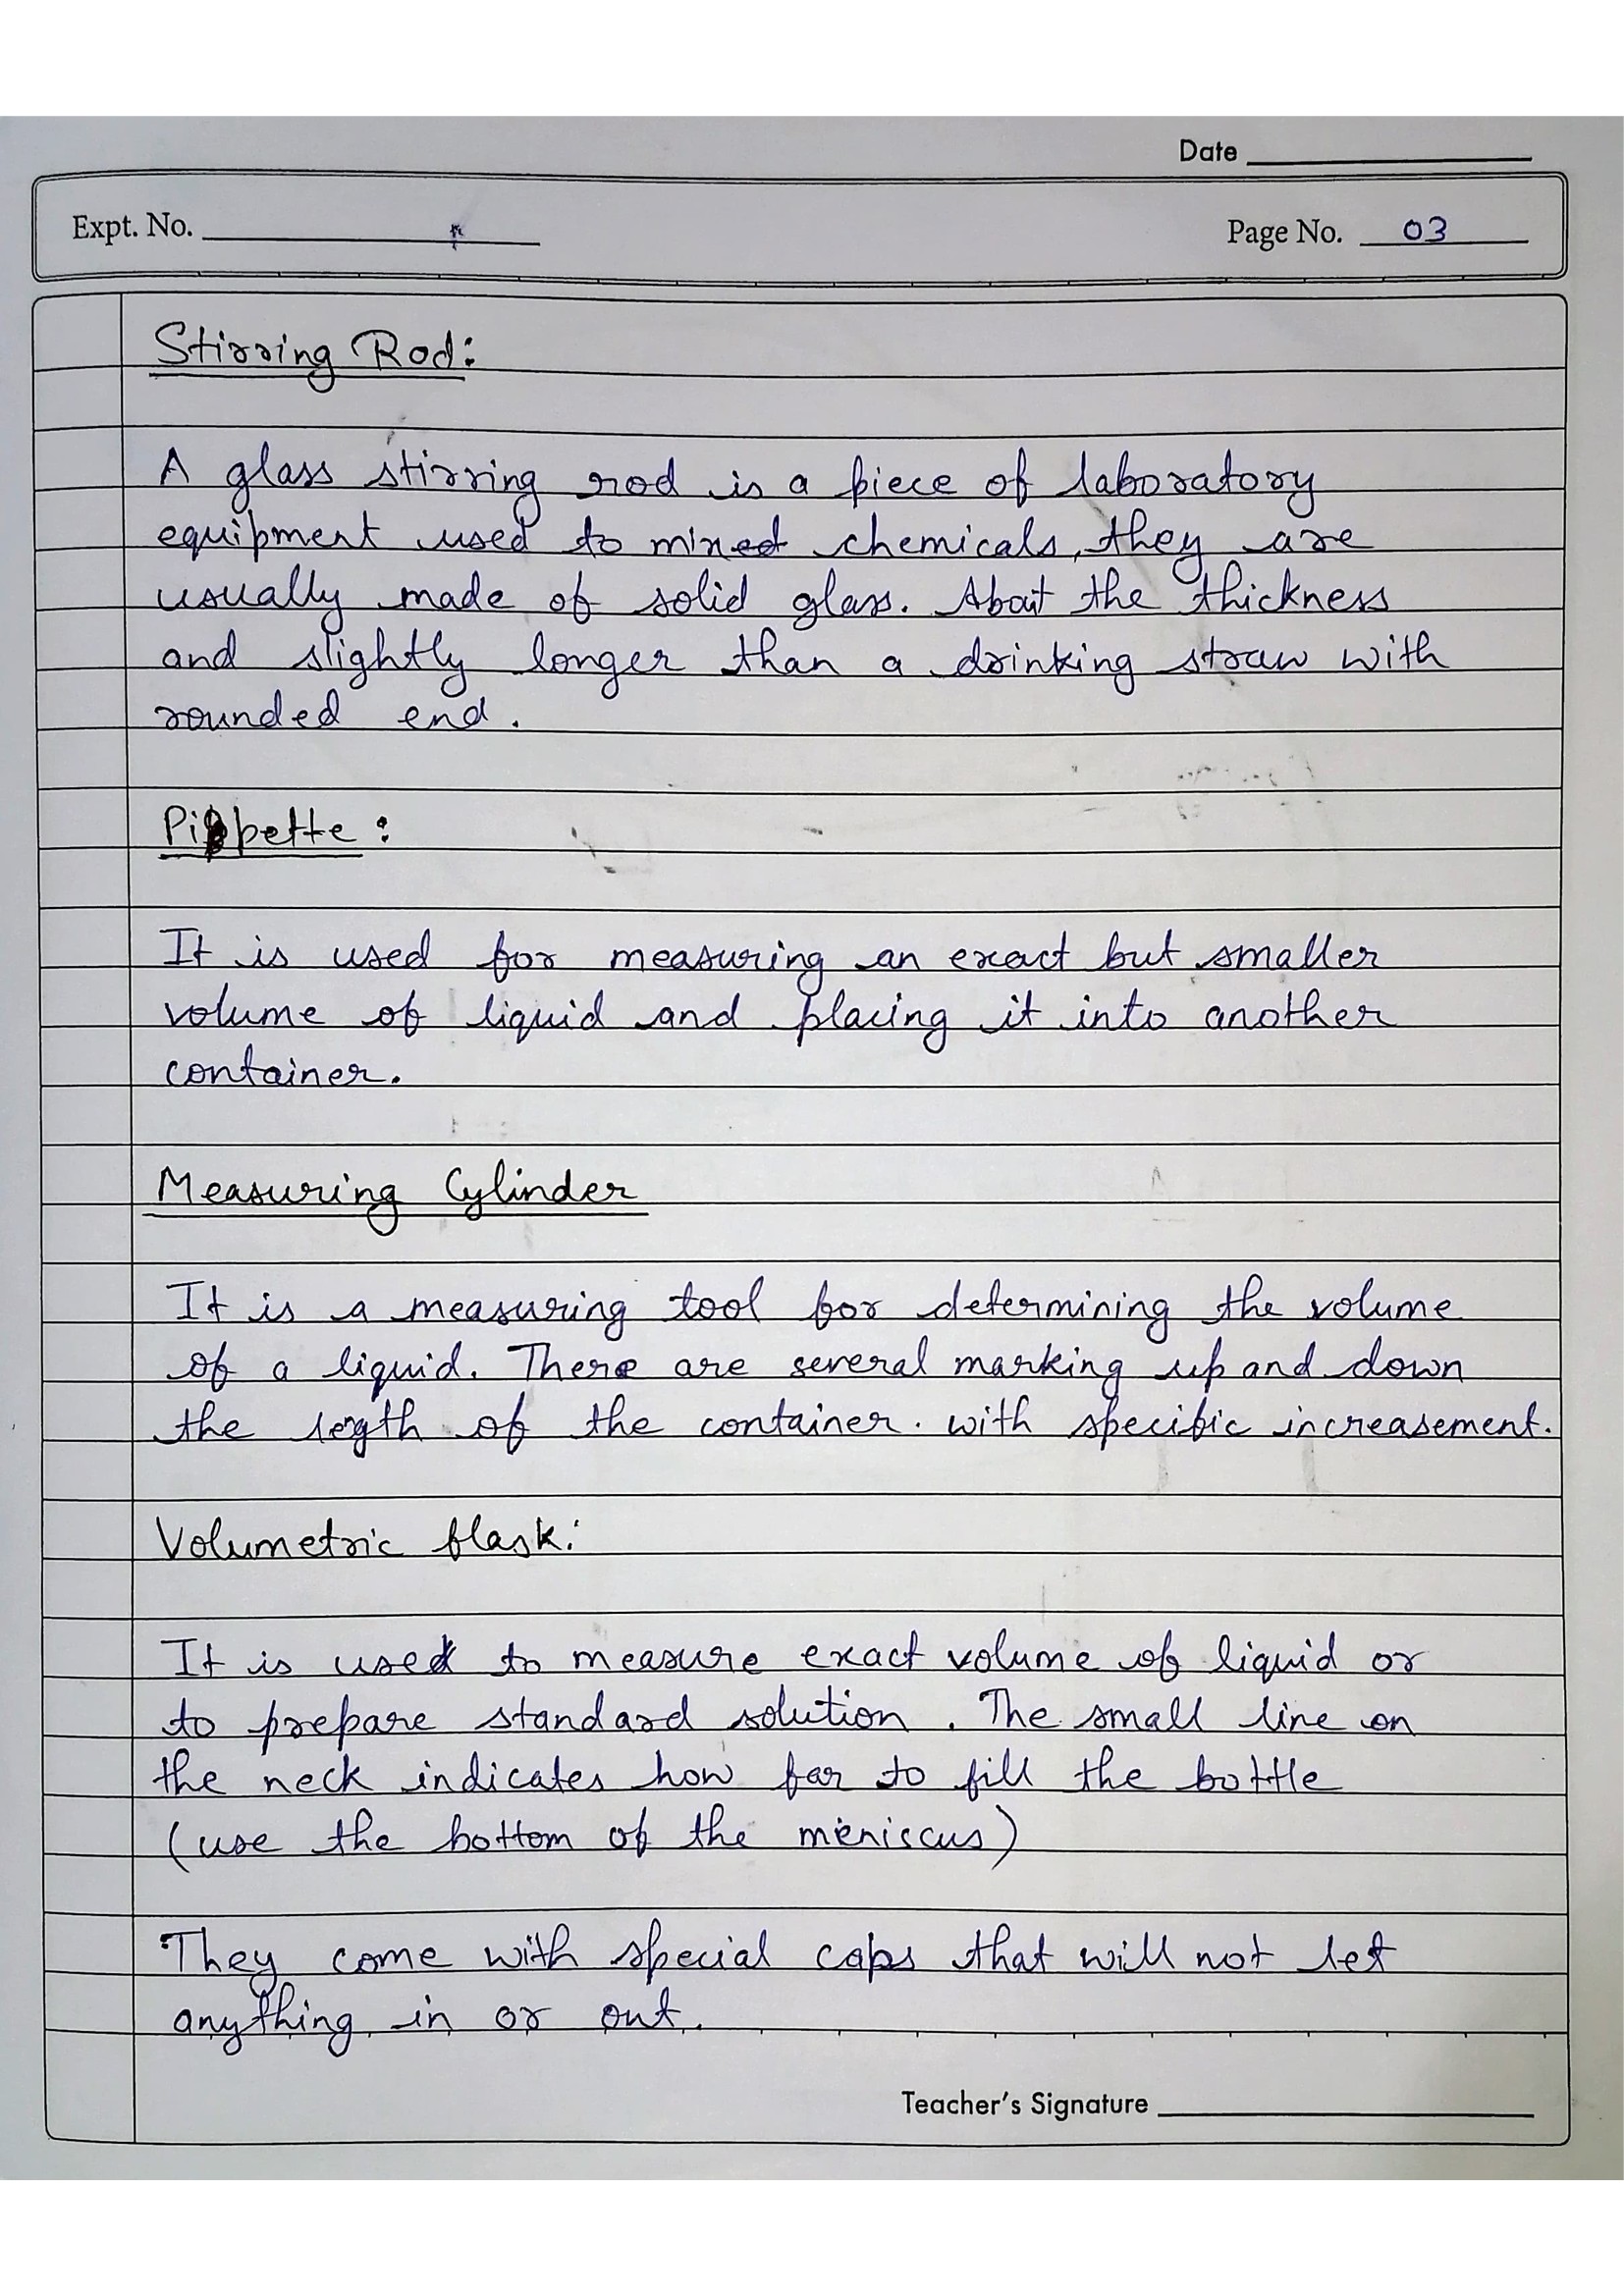 Date
Expt. No.
Page No. 03
Stirring Rod:
A glass stirring rod is a piece of laboratory
equipment used to mixed chemicals, they are
usually made of solid glass. About the thickness
and slightly longer than a drinking straw with
rounded end.
Pippette:
It is used for measuring an exact but smaller
volume of liquid and placing it into another
container.
Measuring Cylinder
It is a measuring tool for determining the volume
of a liquid. There are several marking up and down
the legth of the container. with specific increasement.
Volumetric flask:
It is used to measure exact volume of liquid or
to prepare standard solution. The small line on
the neck indicates how far to fill the bottle
(use the bottom of the meniscus)
They come with special caps that will not let
anything in or out.
Teacher's Signature